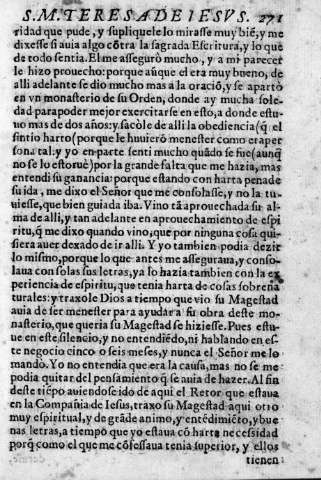 S. M. TERESA DE IESVS. 271
ridad que pude, y supliquele lo mirasse muy biē, y me
dixesse si auia algo cōtra la sagrada Escritura, y lo que
de todo sentia. El me assegurò mucho, y a mi parecer
le hizo prouecho: porque aūque el era muy bueno, de
alli adelante se dio mucho mas a la oraciō, y se apartò
en vn monasterio de su Orden, donde ay mucha sole-
dad para poder mejor exercitarse en esto, a donde estu-
uo mas de dos años: y sacòle de alli la obediencia (q̄ el
sintio harto) porque le huuierō menester como era per
sona tal: y yo en parte senti mucho quādo se fue (aunq̄
no se lo estoruè) por la grande falta que me hazia, mas
entendi su ganancia: porque estando con harta pena de
su ida, me dixo el Señor que me consolasse, y no la tu-
uiesse, que bien guiada iba. Vino tā aprouechada su al-
ma de alli, y tan adelante en aprouechamiento de espi
ritu, q̄ me dixo quando vino, que por ninguna cosa qui-
siera auer dexado de ir alli. Y yo tambien podia dezir
lo mismo, porque lo que antes me asseguraua, y conso-
laua con solas sus letras, ya lo hazia tambien con la ex
periencia de espiritu, que tenia harta de cosas sobrena
turales: y traxole Dios a tiempo que vio su Magestad
auia de ser menester para ayudar a su obra deste mo-
nasterio, que queria su Magestad se hiziesse. Pues estu-
ue en este silencio, y no entendiēdo, ni hablando en es-
te negocio cinco o seis meses, y nunca el Señor me lo
mandò. Yo no entendia que era la causa, mas no se me
podia quitar del pensamiento q̄ se auia de hazer. Al fin
deste tiēpo auiendose ido de aqui el Retor que estaua
en la Compañia de Iesus, traxo su Magestad aqui otro
muy espiritual, y de grāde animo, y entēdimiēto, y bue
nas letras, a tiempo que yo estaua cō harta necessidad
porq̄ como el que me cōfessaua tenia superior, y ellos
tienen